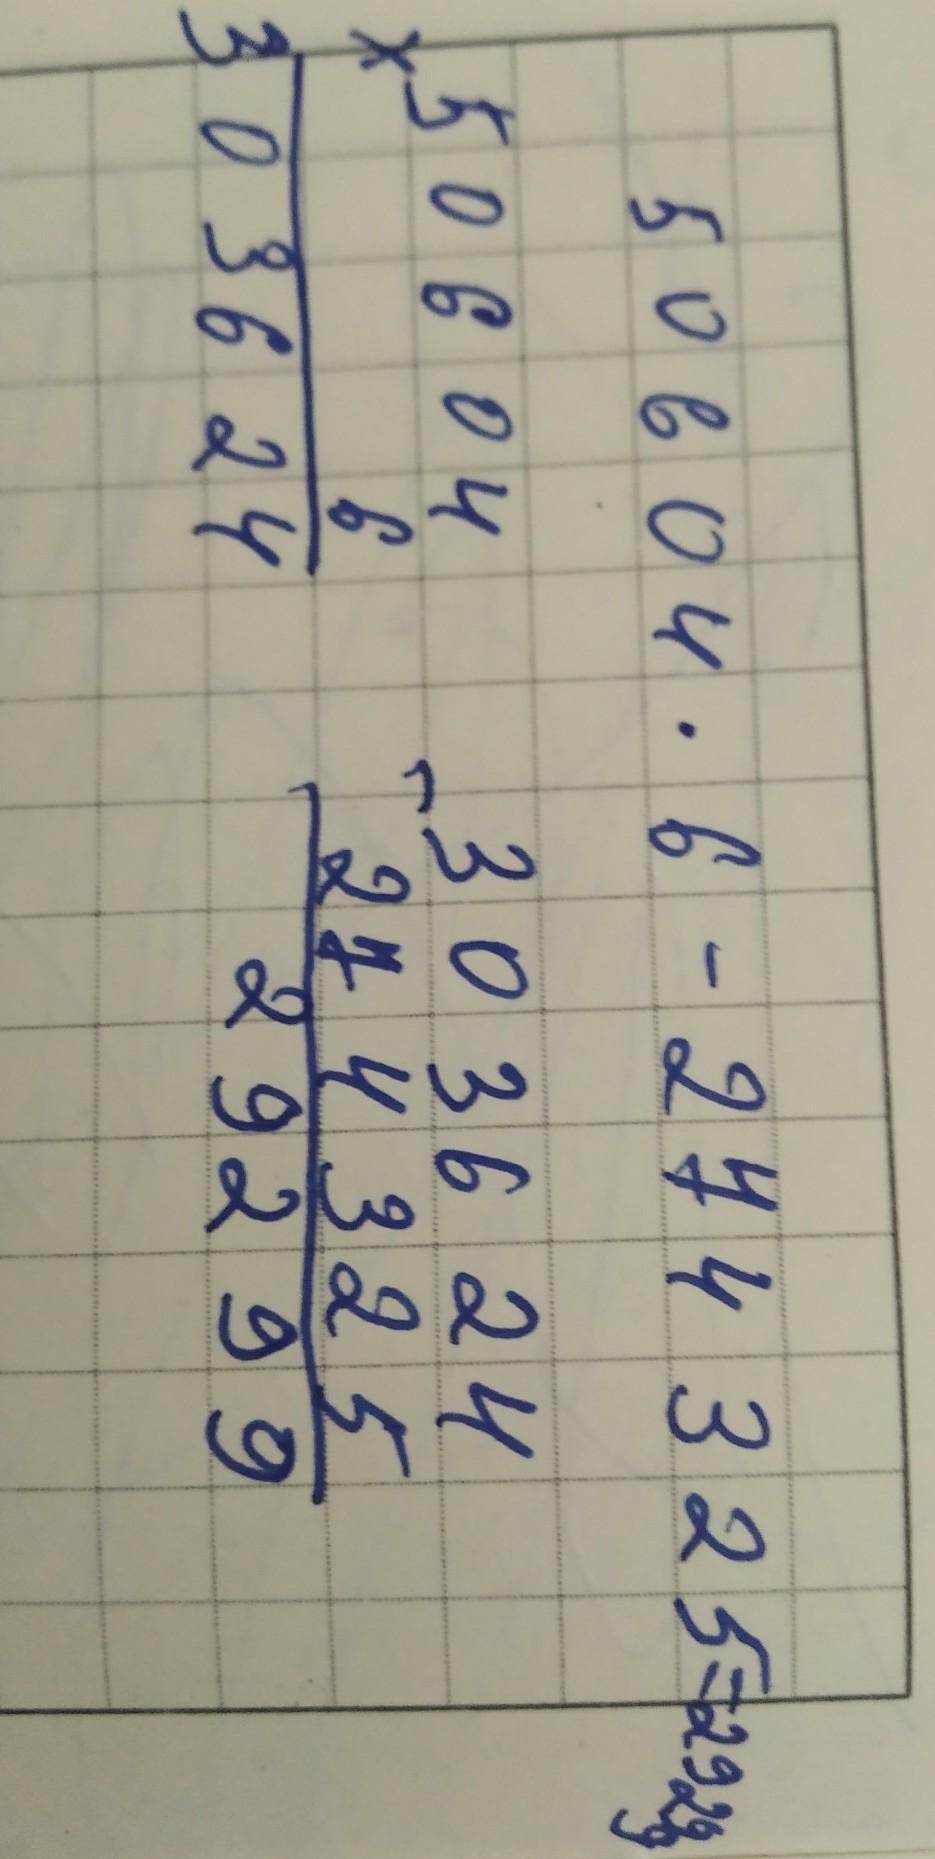 50604·6-274325=29299
×50604
6
303624
-303624
274325
29299